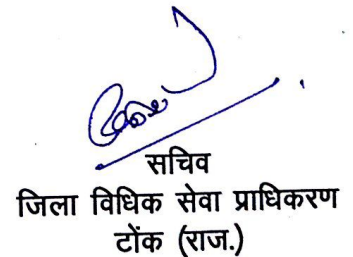 सचिव
जिला विधिक सेवा प्राधिकरण
टोंक (राज.)